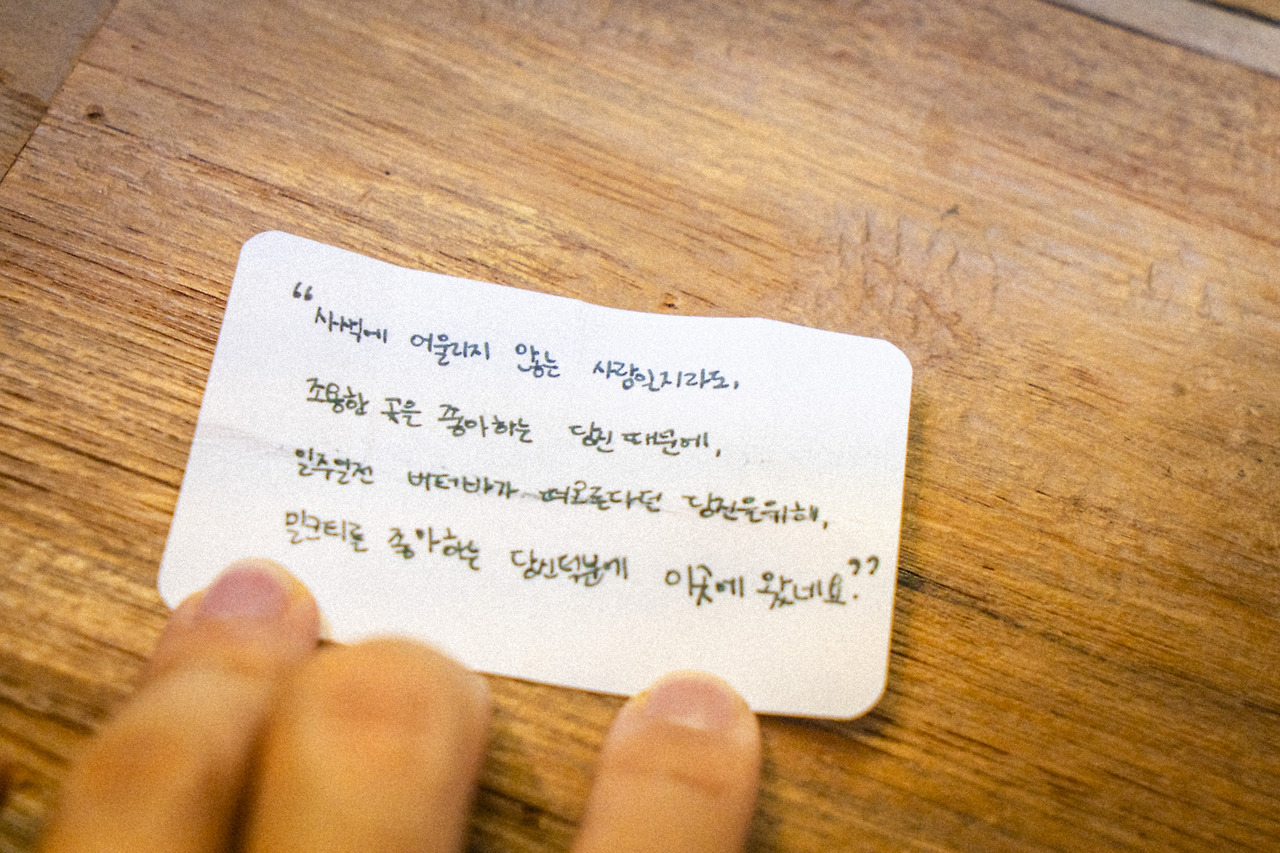 “사막에 어울리지 않는 사랑일지라도,
조용한 곳을 좋아하는 당신 때문에,
일주일전 버터바가 떠오른다던 당신을위해,
밀크티를 좋아하는 당신덕분에 이곳에 왔네요.”